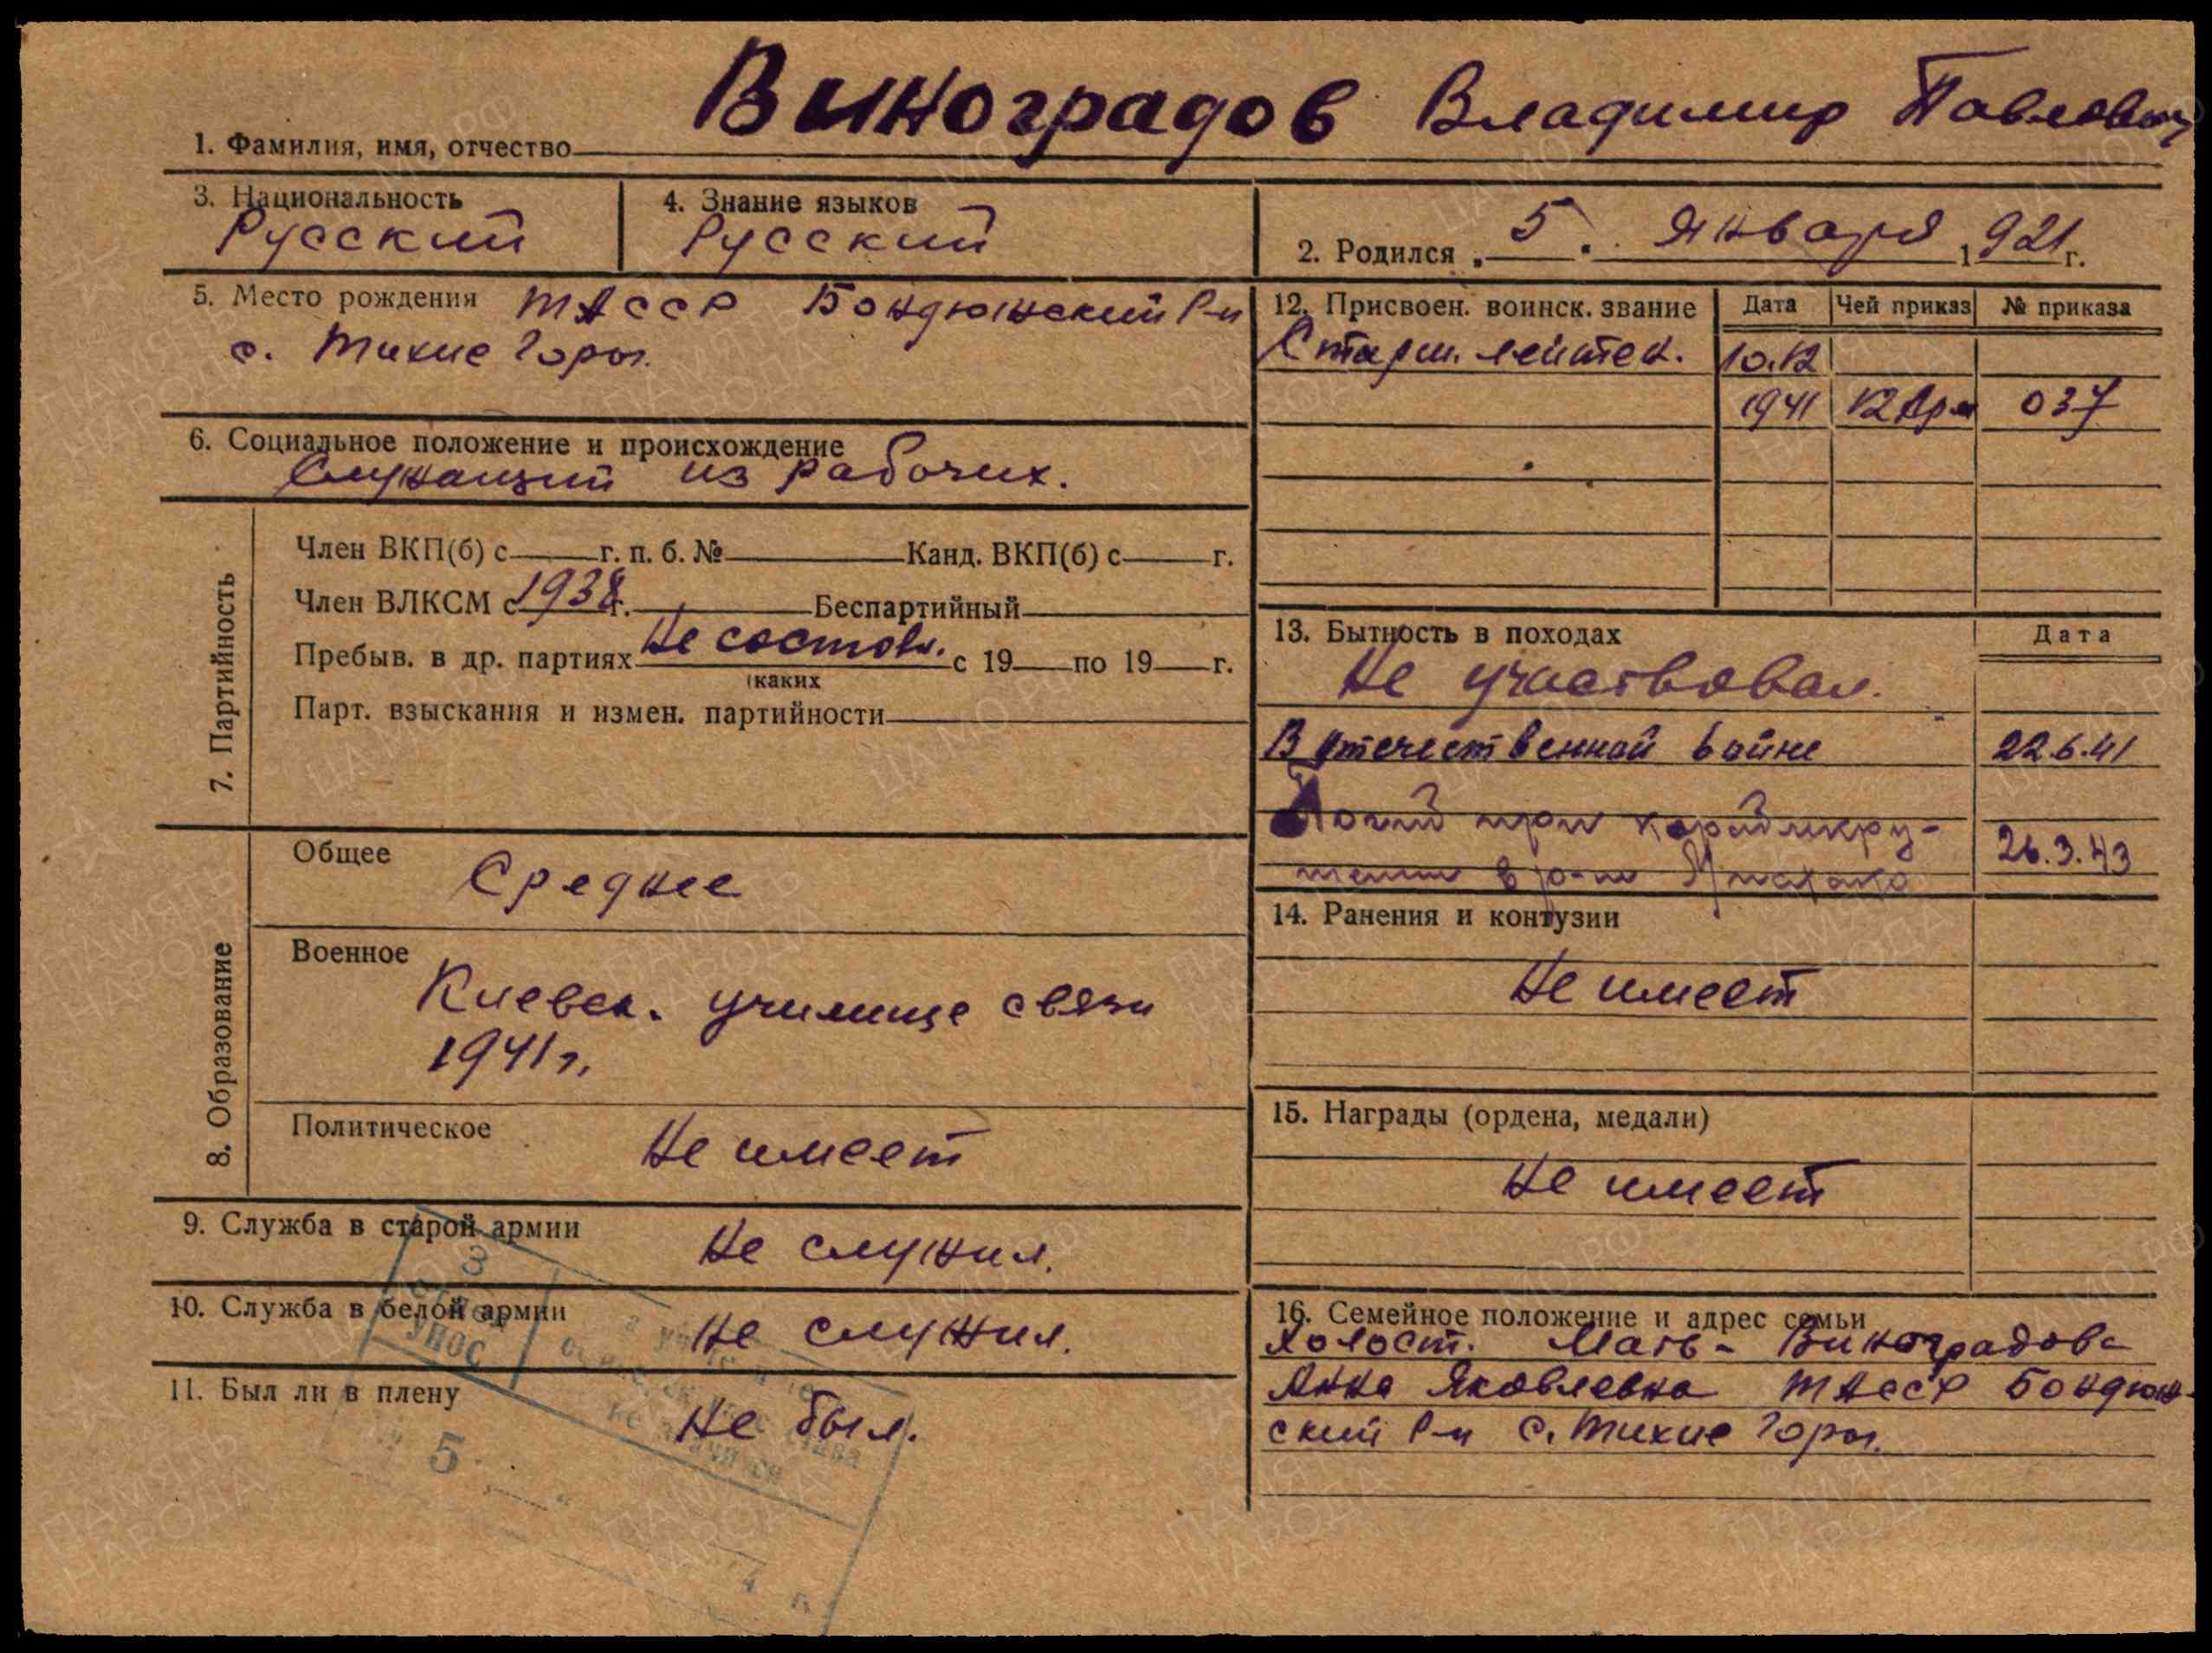 1. Фамилия, имя, отчество Виноградов Владимир Павлович
3. Национальность Русский
4. Знание языков Русский
2. Родился 5. января 1921 г.
5. Место рождения ТАССР Бондюжский Р-н
с. Тихие Горы.
6. Социальное положение и происхождение
Служащий из рабочих.
7. Партийность
Член ВКП(б) с г. п. б. № Канд. ВКП(б) с г.
Член ВЛКСМ с 1938 г. Беспартийный
Пребыв. в др. партиях Не состоял. с 19 по 19 г.
(каких
Парт. взыскания и измен. партийности
8. Образование
Общее Среднее
Военное
Киевск. училище связи
1941 г.
Политическое Не имеет
9. Служба в старой армии Не служил.
10. Служба в белой армии Не служил.
11. Был ли в плену Не был.
12. Присвоен. воинск. звание Дата Чей приказ № приказа
Старш. лейтен. 10.12
1941 12 Арм 037
13. Бытность в походах Дата
Не участвовал.
В отечественной войне 22.6.41
Погиб при кораблекру-
шении в р-не Мысхако 26.3.43
14. Ранения и контузии
Не имеет
15. Награды (ордена, медали)
Не имеет
16. Семейное положение и адрес семьи
Холост. Мать - Виноградова
Анна Яковлевна ТАССР Бондюж-
ский Р-н с. Тихие Горы.
3
отдел
УПОС
5
ПАМЯТЬ
НАРОДА
ЦАМО.РФ